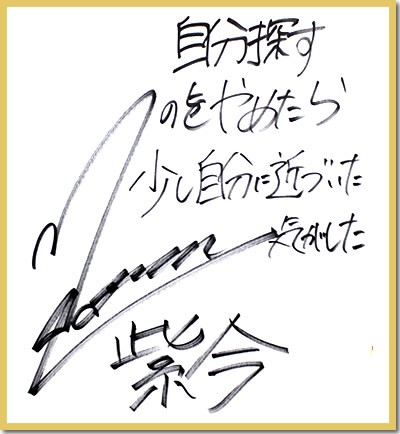 自分探す
のをやめたら
少し自分に近づいた
気がした
紫今